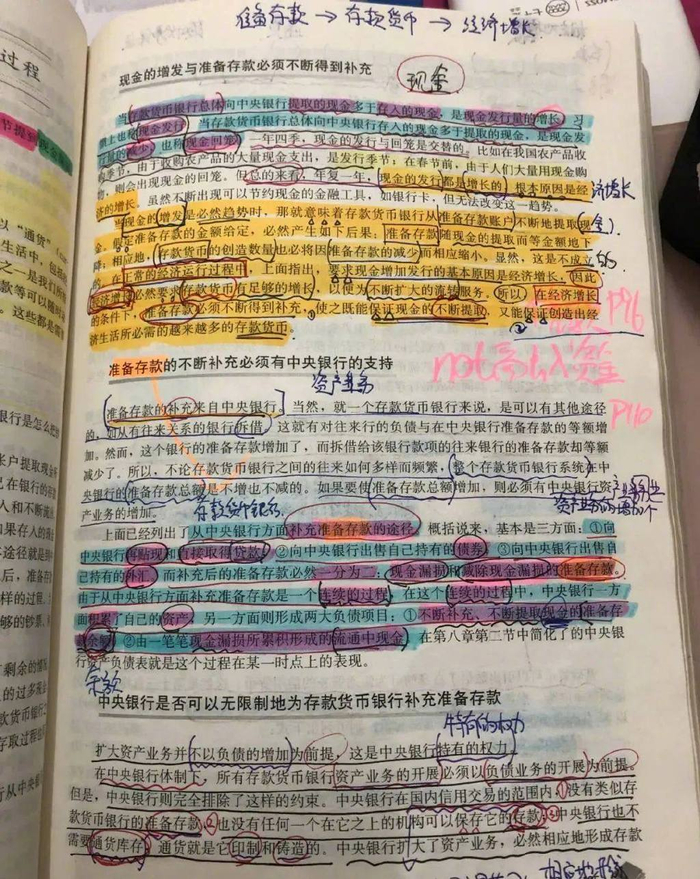 准备存款 → 存款货币 → 经济增长
现金的增发与准备存款必须不断得到补充
现金
当存款货币银行总体向中央银行提取的现金多于存入的现金，是现金发行量的增长，习
惯上也称现金发行；当存款货币银行总体向中央银行存入的现金多于提取的现金，是现金发
行量的减少，也称现金回笼。一年四季，现金的发行与回笼是交替的。比如在我国农产品收
购季节，由于收购农产品的大量现金支出，是发行季节；在春节前，由于人们大量用现金购
物，则会出现现金的回笼。但总的来看，年复一年，现金的发行都是增长的，根本原因是经
济增长
济的增长。虽然不断出现可以节约现金的金融工具，如银行卡，但无法改变这一趋势。
当现金的增发是必然趋势时，那就意味着存款货币银行从准备存款账户不断地提取现
金。假定准备存款的金额给定，必然产生如下后果：准备存款随现金的提取而等金额地下
降；相应地，存款货币的创造数量也必将因准备存款的减少而相应缩小。显然，这是不成立
的。在正常的经济运行过程中，上面指出，要求现金增加发行的基本原因是经济增长，因此
经济增长必然要求存款货币有足够的增长，以便为不断扩大的流转服务。所以，在经济增长
的条件下，准备存款必须不断得到补充，使之既能保证现金的不断提取，又能保证创造出经
济生活所必需的越来越多的存款货币。
P76
准备存款的不断补充必须有中央银行的支持
资产业务
P110
准备存款的补充来自中央银行。当然，就一个存款货币银行来说，是可以有其他途径
的，如从有往来关系的银行拆借。这就有对往来行的负债与在中央银行准备存款的等额增
加。然而，这个银行的准备存款增加了，而拆借给该银行款项的往来银行的准备存款却等额
减少了。所以，不论存款货币银行之间的往来如何多样而频繁，整个存款货币银行系统在中
央银行的准备存款总额是不增也不减的。如果要使准备存款总额增加，则必须有中央银行资
产业务的增加。
存款货币银行
上面已经列出了从中央银行方面补充准备存款的途径。概括说来，基本是三方面：①向
中央银行再贴现和直接取得贷款；②向中央银行出售自己持有的债券；③向中央银行出售自
己持有的外汇。而补充后的准备存款必然一分为二：现金漏损和减除现金漏损的准备存款。
由于从中央银行方面补充准备存款是一个连续的过程，在这个连续的过程中，中央银行一方
面积累了自己的资产，另一方面则形成两大负债项目：①不断补充、不断提取现金的准备存
款余额；②由一笔笔现金漏损所累积形成的流通中现金。在第八章第二节中简化了的中央银
行资产负债表就是这个过程在某一时点上的表现。
中央银行是否可以无限制地为存款货币银行补充准备存款
特有的权力
扩大资产业务并不以负债的增加为前提，这是中央银行特有的权力。
在中央银行体制下，所有存款货币银行资产业务的开展必须以负债业务的开展为前提。
但是，中央银行则完全排除了这样的约束。中央银行在国内信用交易的范围内，没有类似存
款货币银行的准备存款，也没有任何一个在它之上的机构可以保存它的存款；中央银行也不
需要通货库存，通货就是它印制和铸造的。中央银行扩大了资产业务，必然相应地形成存款